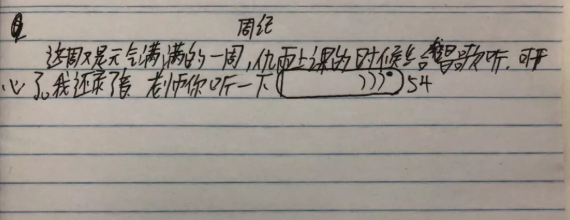 周纪
这周又是元气满满的一周,仇雨上课的时候坐唱歌听,可开
心了。我还录了音 老师你听一下 ))) 54